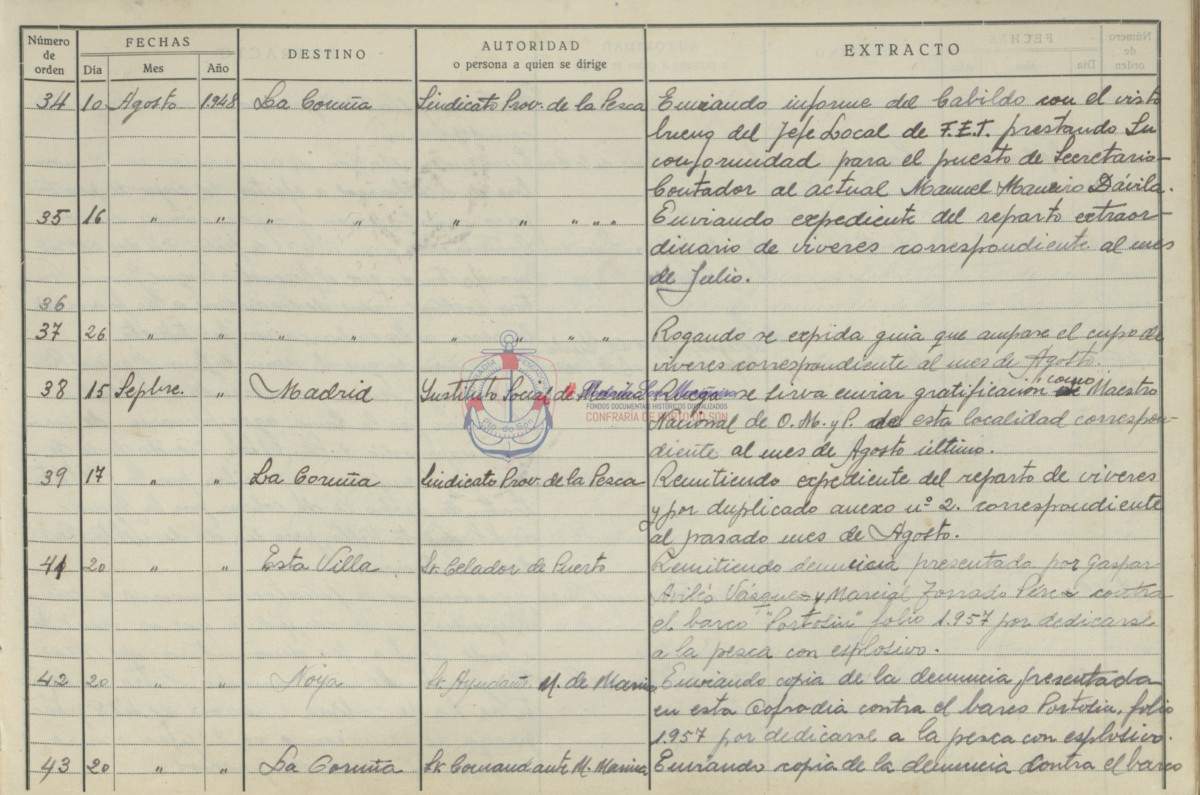 Número de orden | FECHAS Día Mes Año | DESTINO | AUTORIDAD o persona a quien se dirige | EXTRACTO
34 10 Agosto 1.948 La Coruña Sindicato Prov. de la Pesca Enviando informe del Cabildo con el visto
bueno del Jefe Local de F.E.T. prestando su
conformidad para el puesto de Secretario-
Contador al actual Manuel Maneiro Dávila.
35 16 " " " " " " " " " Enviando expediente del reparto extraor-
dinario de viveres correspondiente al mes
de Julio.
36
37 26 " " " " " " " " Rogando se expida guia que ampare el cupo de
viveres correspondiente al mes de Agosto.
38 15 Sepbre. " Madrid Ynstituto Social de Marina Ruega se sirva enviar gratificación como Maestro
Nacional de O.M. y P. de esta localidad correspon-
diente al mes de Agosto último.
39 17 " " La Coruña Sindicato Prov. de la Pesca Remitiendo expediente del reparto de viveres
y por duplicado anexo nº 2. correspondiente
al pasado mes de Agosto.
41 20 " " Esta Villa Sr. Celador de Puerto Remitiendo denuncia presentado por Gaspar
Avilés Vásques y Marcial Pérez contra
el barco "Portosin" folio 1.957 por dedicarse
a la pesca con esplosivo.
42 20 " " Noya Sr. Ayudant. M. de Marina Enviando copia de la denuncia presentada
en esta Cofradia contra el barco Portosin, folio
1.957 por dedicarse a la pesca con esplosivo.
43 20 " " La Coruña Sr. Comandante M. Marina Enviando copia de la denuncia contra el barco
FONDOS DOCUMENTAIS HISTÓRICOS DIGITALIZADOS
CONFRARÍA DE PORTO DO SON
Pto. do Son